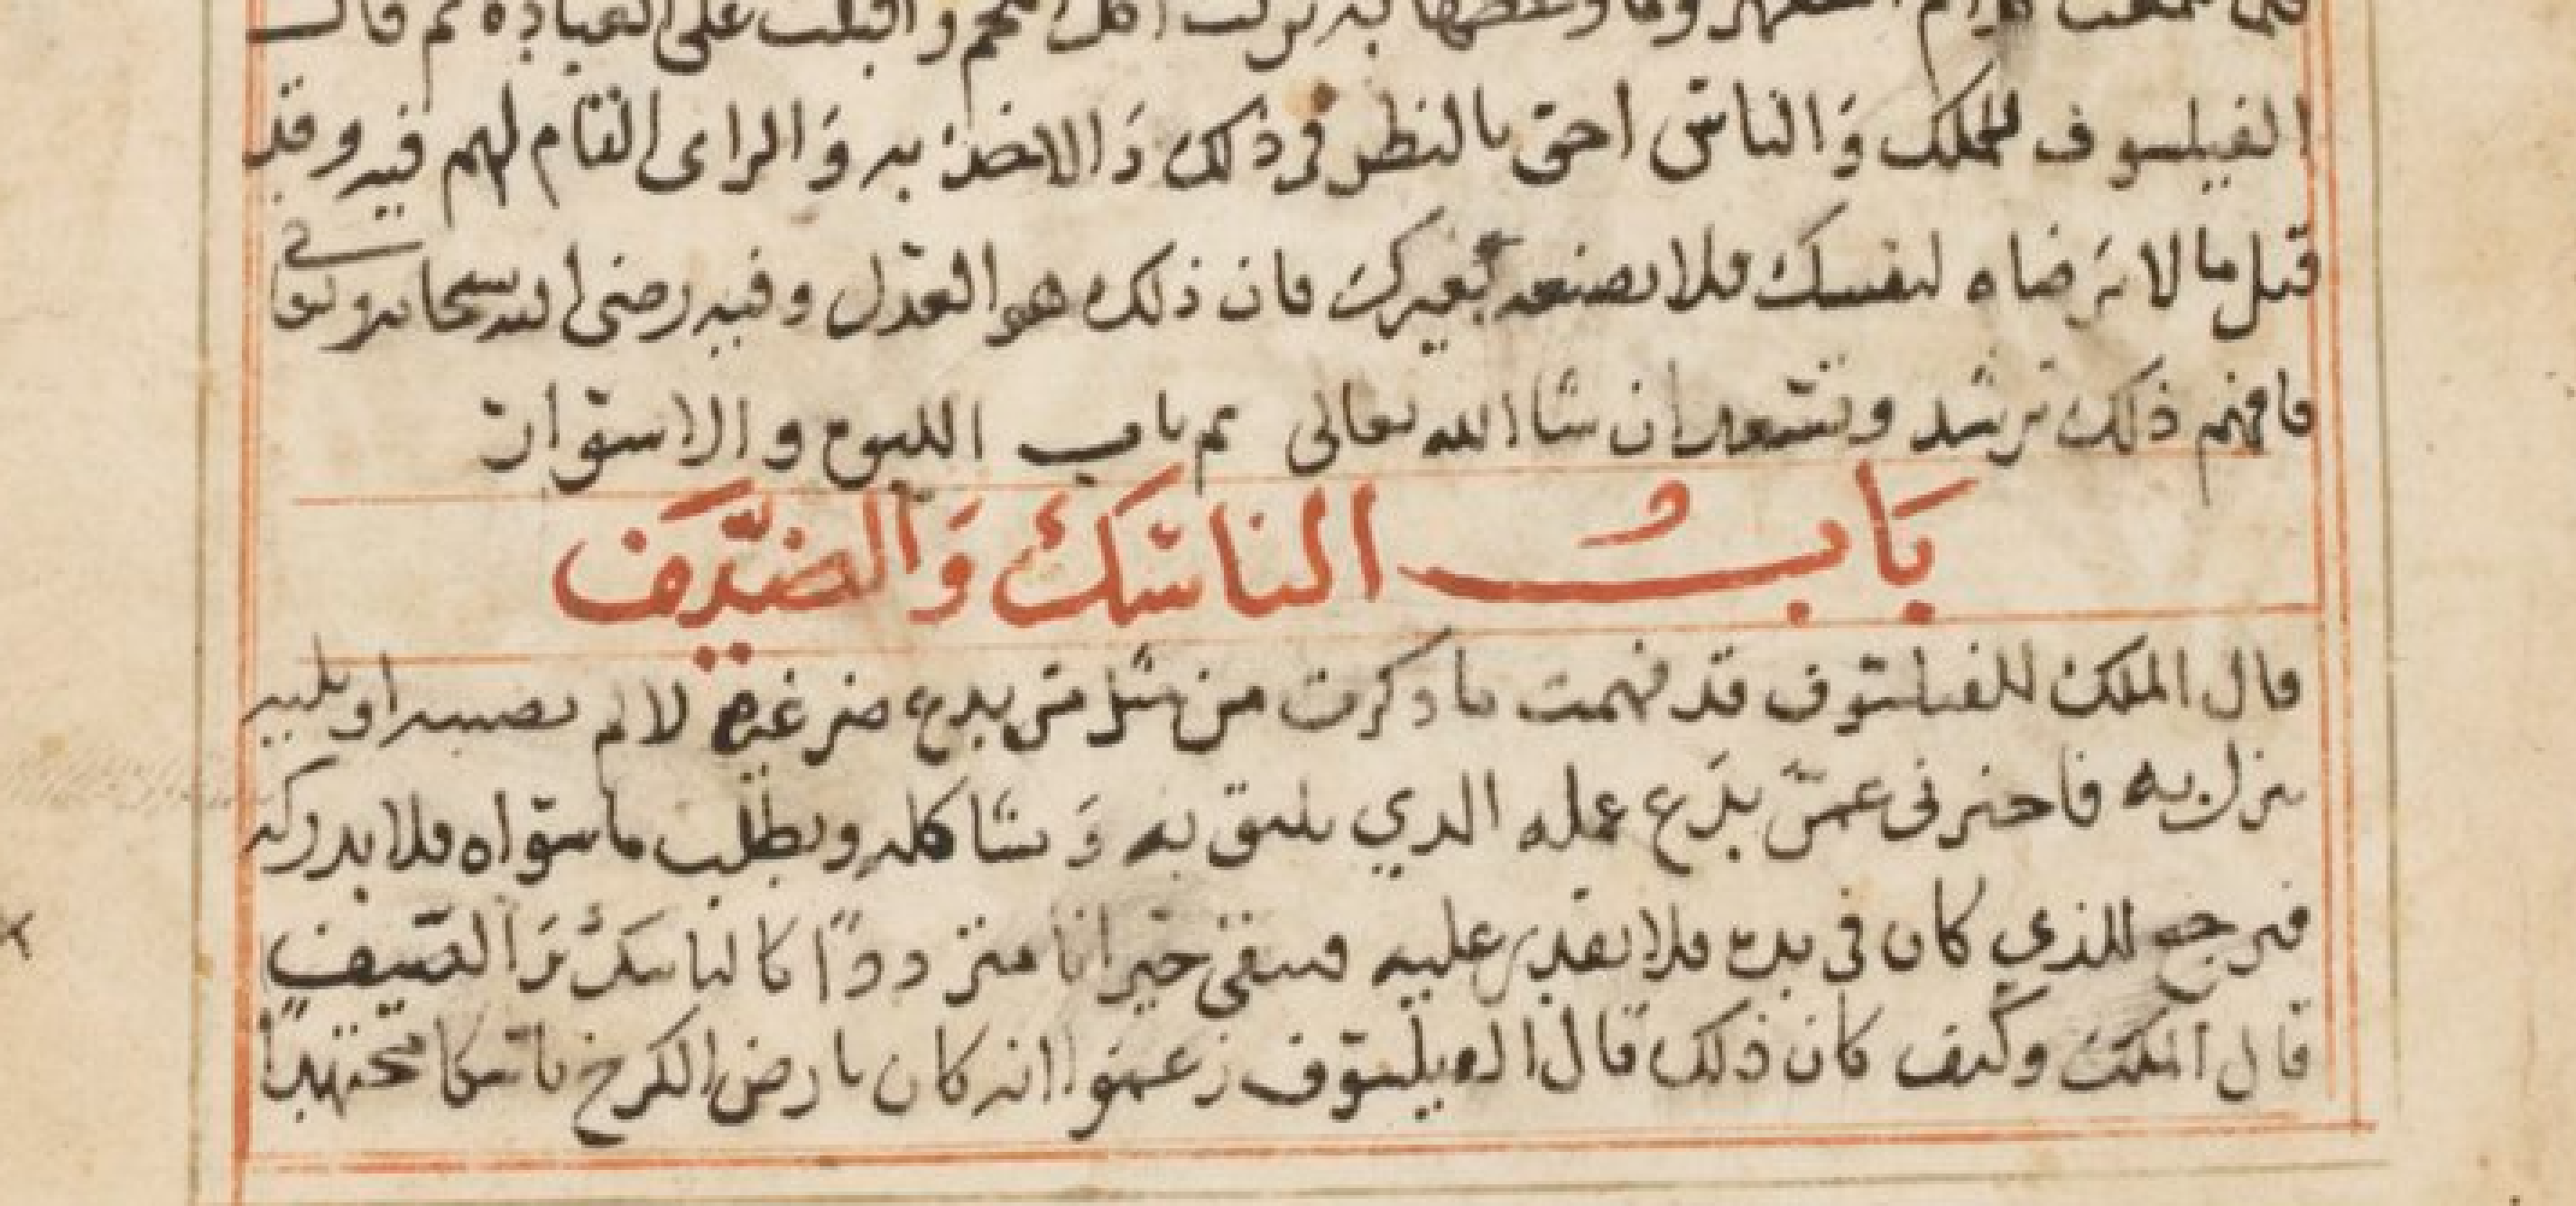 واقبلت على العبادة ثم قال
الفيلسوف للملك وَالناس احق بالنظر فى ذلك وَالاخذ به وَالراى التام لهم فيه وقد
قيل ما لا ترضاه لنفسك فلا تصنعه لغيرك فان ذلك هو العدل وفيه رضى الله سبحانه وتعالى
فافهم ذلك ترشد وتسعد ان شا الله تعالى تم باب اللبوه والاسوار
بَابُ الناسك وَالضَيْف
قال الملك للفيلسوف قد فهمت ما ذكرت من مثل من يدع ضر غيره لالم يصيبه او بليه
تنزل به فاخبرنى عمّن يدَع عمله الذي يليق به وَيشاكله ويطلب ما سواه فلا يدركه
فيرجع للذي كان فى يده فلا يقدر عليه فيبقى حيرانا مترددًا كالناسك وَالضيف
قال الملك وكيف كان ذلك قال الفيلسوف زعموا انه كان بارض الكرخ ناسكا مجتهدًا